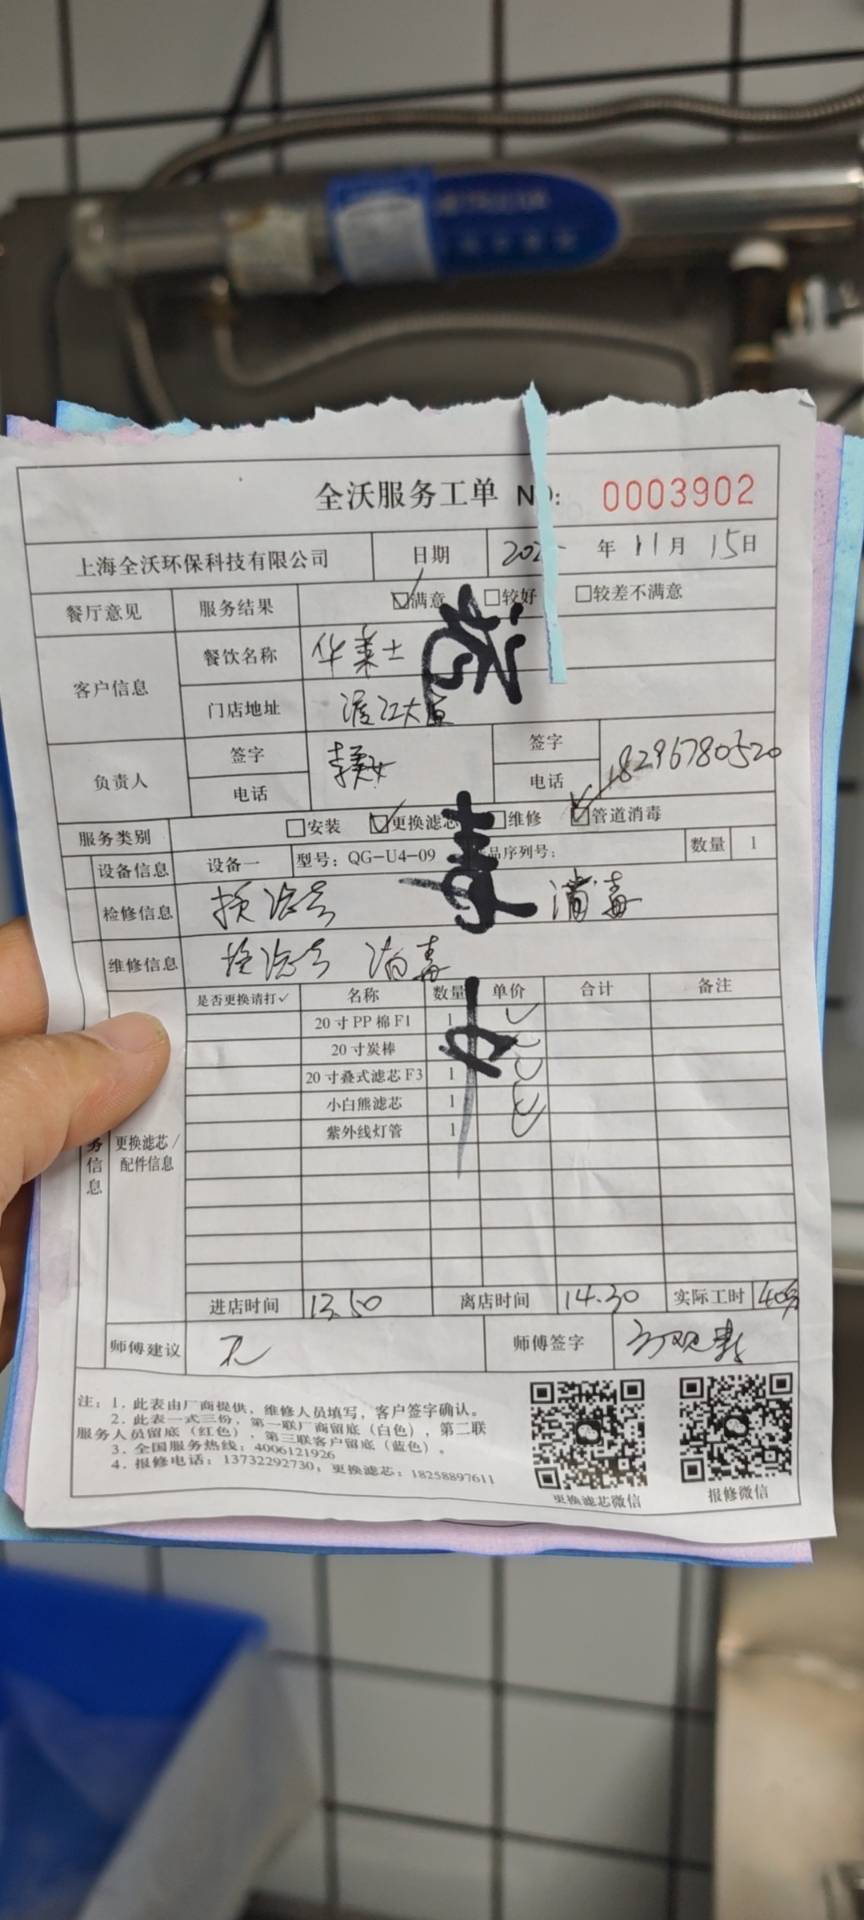 全沃服务工单 NO: 0003902
上海全沃环保科技有限公司 日期 202 年 11月 15日
餐厅意见 服务结果 ☑满意 □较好 □较差不满意
客户信息 餐饮名称 华莱士
门店地址
负责人 签字 签字
电话 电话 18296780520
服务类别 □安装 ☑更换滤芯 □维修 ☑管道消毒
设备信息 设备一 型号: QG-U4-09 品序列号: 数量 1
检修信息 换滤芯 消毒
维修信息 换滤芯 消毒
是否更换请打✓ 名称 数量 单价 合计 备注
20寸PP棉F1 1
20寸炭棒
20寸叠式滤芯F3 1
小白熊滤芯 1
紫外线灯管 1
务信息 更换滤芯/配件信息
进店时间 13.50 离店时间 14.30 实际工时 40分
师傅建议 无 师傅签字
注: 1. 此表由厂商提供, 维修人员填写, 客户签字确认。
2. 此表一式三份, 第一联厂商留底(白色), 第二联
服务人员留底(红色), 第三联客户留底(蓝色)。
3. 全国服务热线: 4006121926
4. 报修电话: 13732292730; 更换滤芯: 18258897611
更换滤芯微信 报修微信